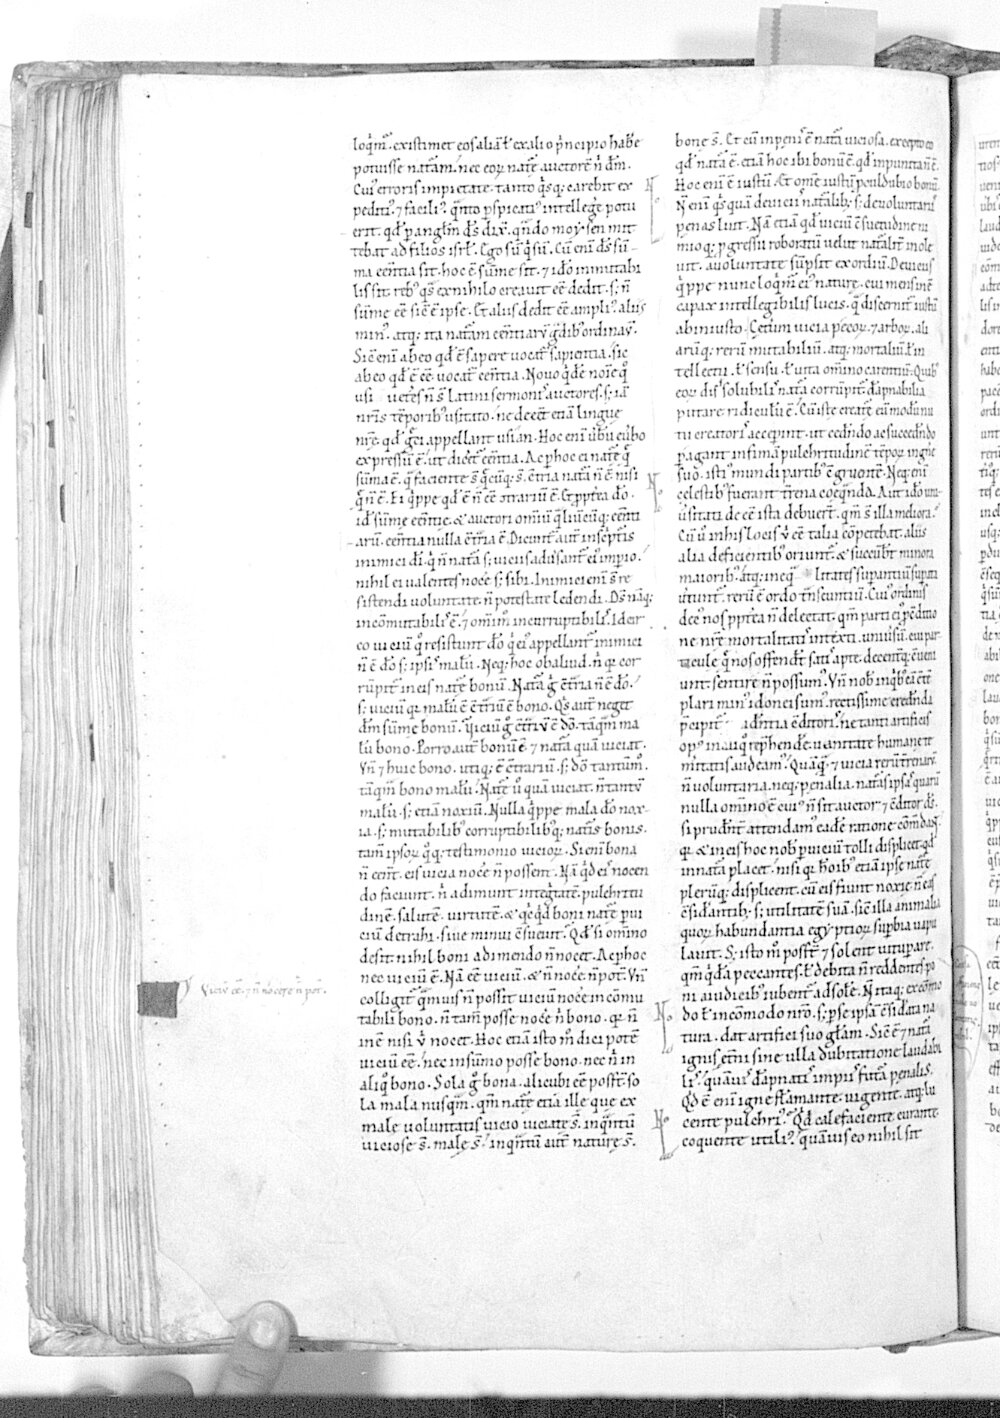 loq̄m̄. existimet eos aliā ł ex alio p̄ncipio habe
potuisse natām. nec eoꝝ natę̄ auctorē n̄ dm̄.
Cui' erroris impietate tanto q̄sq; carebit ex
pediti' ⁊ facili'. q̄nto p̄spicaci' intellegḗ potu
erit. qd̄ p̄ anglm̄ dṡ dix̄. qn̄do moẏsen mit
tebat ad filios isrł. Ego sū q̄ sū. Cū enī dṡ sū
ma ēentia sit. hoc ē sūme sit. ⁊ idō inmutabi
lis sit. reb' q̄s ex nihilo creauit eē dedit. s; n̄
sūme eē sic̄ ē ipse. Et aliis dedit eē ampli'. aliis
min'. atq; ita natām ēentiarū ḡdib' ordinau̅.
Sic̄ enī ab eo qd̄ ē sapere uocat̄ sapientia. sic
ab eo qd̄ ē eē uocat̄ ēentia. Nouo q̄dē noīe q̄
usi uetēs n̄ s̄ latini sermoni' auctores. s; iā
nr̄is tēporib' usitato. ne deēet etiā linguę
nrę̄. qd̄ gēi appellant usian. Hoc enī ūbū eūbo
expressū ē. ut dicēt̄ ēentia. Ac p̄ hoc ei natę̄ q̄
sūma ē. q̄ faciente s̄ q̄cūq; s̄. ēt̄ria natā n̄ ē nisi
q̄ n̄ ē. Ei q̄ppe qd̄ ē n̄ eē ōtrariū ē. Et p̄pt̄ea dō.
id' sūme ēentię. & auctori omīū q̄liūcūq; ēenti
arū. ēentia nulla ēt̄ria ē. Dicunt̄ aut̄ in sc̄pt̄is
inimici dī. q̄ n̄ natā s; uiciis aduersant̄ ei' impio.
nihil ei ualentes nocē s; sibi. Inimici enī s̄ re
sistendi uoluntate. n̄ potestate ledendi. Dṡ nāq;
incōmutabilis ē. ⁊ omīm̄ incorruptibilis. Idcir
co uiciū q̄ resistunt dō q̄ ei' appellant̄ inimici
n̄ ē dō s; ipsis malū. Neq; hoc ob aliud. n̄ q̄ cor
rūpit in eis natę̄ bonū. Natā ḡ ēt̄ria n̄ ē dō.
s; uiciū q̄ malū ē ēt̄riū ē bono. Q̇s aut̄ neget
dm̄ sūme bonū. Viciū ḡ ēt̄riū ē dō. tāq̄m ma
lū bono. Porro aut̄ bonū ē. ⁊ natā quā uiciat.
Vn̄ ⁊ huic bono. utiq; ē ēt̄rariū. s; dō tantūm'.
tāq̄m bono malū. Natę̄ ū quā uiciat. n̄ tantū
malū. s; etiā noxiū. Nulla q̄ppe mala dō nox
ia. s; mutabilib' corruptibilib'q; natīs bonis.
tam̄ ipsoꝝ q̄q; testimonio uicioꝝ. Si enī bona
n̄ ēent. eis uicia nocē n̄ possent. Nā q̄d eis nocen
do faciunt. n̄ adimunt inteḡtatē. pulchritu
dinē. salutē. uirtutē. & q̄cq̄d boni natę̄ p̄ ui
ciū detrahi. siue minui ēsueuit. Qd̄ si omīno
desit nihil boni adimendo n̄ nocet. Ac p̄ hoc
nec uiciū ē. Nā eē uiciū. & n̄ nocē. n̄ pot̄. Vn̄
colligit̄ q̄muis n̄ possit uiciū nocē in cōmu
tabili bono. n̄ tam̄ posse nocē n̄ bono. q̄ n̄
inē nisi ū nocet. Hoc etiā isto m̄ dici potē
uiciū eē. nec in sūmo posse bono. nec n̄ in
aliq̄ bono. Sola ḡ bona. alicubi eē poss̄t. so
la mala nusq̄m. q̄m natę̄ etiā illę que ex
malę uoluntatis uicio uiciatę s̄. inq̄ntū
uiciosę s̄. malę s̄. inq̄ntū aut̄ naturę s̄.
Viciū eē. ⁊ n̄ nocere n̄ pot̄.
bonę s̄. Et cū in penis ē natā uiciosa. excepto eo
qd̄ natā ē. etiā hoc ibi bonū ē. qd̄ inpunita n̄ ē.
Hoc enī ē iustū. Et omē iustū p̄culdubio bonū.
N̄ enī q̄s quā de uiciis natālib'. s; de uoluntariis
penas luit. Nā etiā qd̄ uiciū ēsuetudine ni
mioq; p̄gressu roboratū uelut natālit̄ inole
uit. a uoluntate sūpsit exordiū. De uiciis
q̄ppe nunc loq̄m̄ ei' naturę. cui mens inē
capax intellegibilis lucis. q̄ discernit̄ iustū
ab iniusto. Cet̄um uicia pecoꝝ. ⁊ arboꝝ. ali
arūq; rerū mutabiliū. atq; mortaliū ł in
tellectu. ł sensu. ł uita omīno carentiū. Quib'
eoꝝ dissolubilis natā corrūpit̄. dāpnabilia
putare ridiculū ē. Cū istę creatę̄ eū modū nu
tu creatoris accep̄int. ut cedendo ac succedendo
p̄agant infimā pulchritudinē tēpoꝝ in gn̄e
suo. istis mundi partib' ēgruentē. Neq; enī
celestib' fuerant t̄rena coęq̄nda. Aut idō uni
ūsitati deeē ista debuer̄t. q̄m s̄ illa meliora.
Cū ḡ in his locis ū eē talia cōpetebat. aliis
alia deficientib' oriunt̄. & succūbt̄ minora
maiorib'. atq; in eq̄ litates supantiū supata
ūtunt̄. rerū ē ordo t̄nseuntiū. Cui' ordinis
dec' nos p̄pt̄ea n̄ delectat. q̄m parti ei' p̄ ēditio
ne nrę̄ mortalitatis intexti. uniūsū. cui par
ticulę q̄ nos offendt̄ satis apte. decent̄q; ēueni
unt. sentire n̄ possum'. Vn̄ nob' in q̄b' eā ēte
plari min' idonei sum'. rectissime credendi
p̄cipit̄ p̄uidentia ēditoris. ne tanti artificis
op' in aliq̄ rep̄hendē. uanitate humanę te
mitatis audeam'. Quāq̄ ⁊ uicia rerū t̄renarū
n̄ uoluntaria. neq; penalia. natas ipsas quarū
nulla omīno ē cui' n̄ sit auctor ⁊ ēditor dṡ.
si prudent̄ attendam'. eadē ratione cōmdāt̄.
q̄ & in eis hoc nob' p̄ uiciū tolli displicet. qd̄
in nata placet. nisi q̄ hōib' etiā ipsę natę̄
plerūq; displicent. cū eis fiunt noxię. n̄ eas
ēsidantib'. s; utilitatē suā. sic̄ illa animalia
quoꝝ habundantia egẏptioꝝ supbia uapu
lauit. S; isto m̄ poss̄t ⁊ solent uitupare.
q̄m q̄da peccantes. ł debita n̄ reddentes po
ni a iudicib' iubent̄ ad solē. N̄ itaq; ex cōmo
do ł incōmodo nr̄o. s; p̄ se ipsā ēsidata na
tura. dat artifici suo gl̄am. Sic̄ ē ⁊ natā
ignis et̄ni sine ulla dubitatione laudabi
lis. quāuis dāpnatis impiis futā penalis.
Qd̄ ē enī igne flāmante. uigente. atq; lu
cente pulchri'? Qd̄ calefaciente. curante.
coquente. utilis? quāuis eo nihil sit